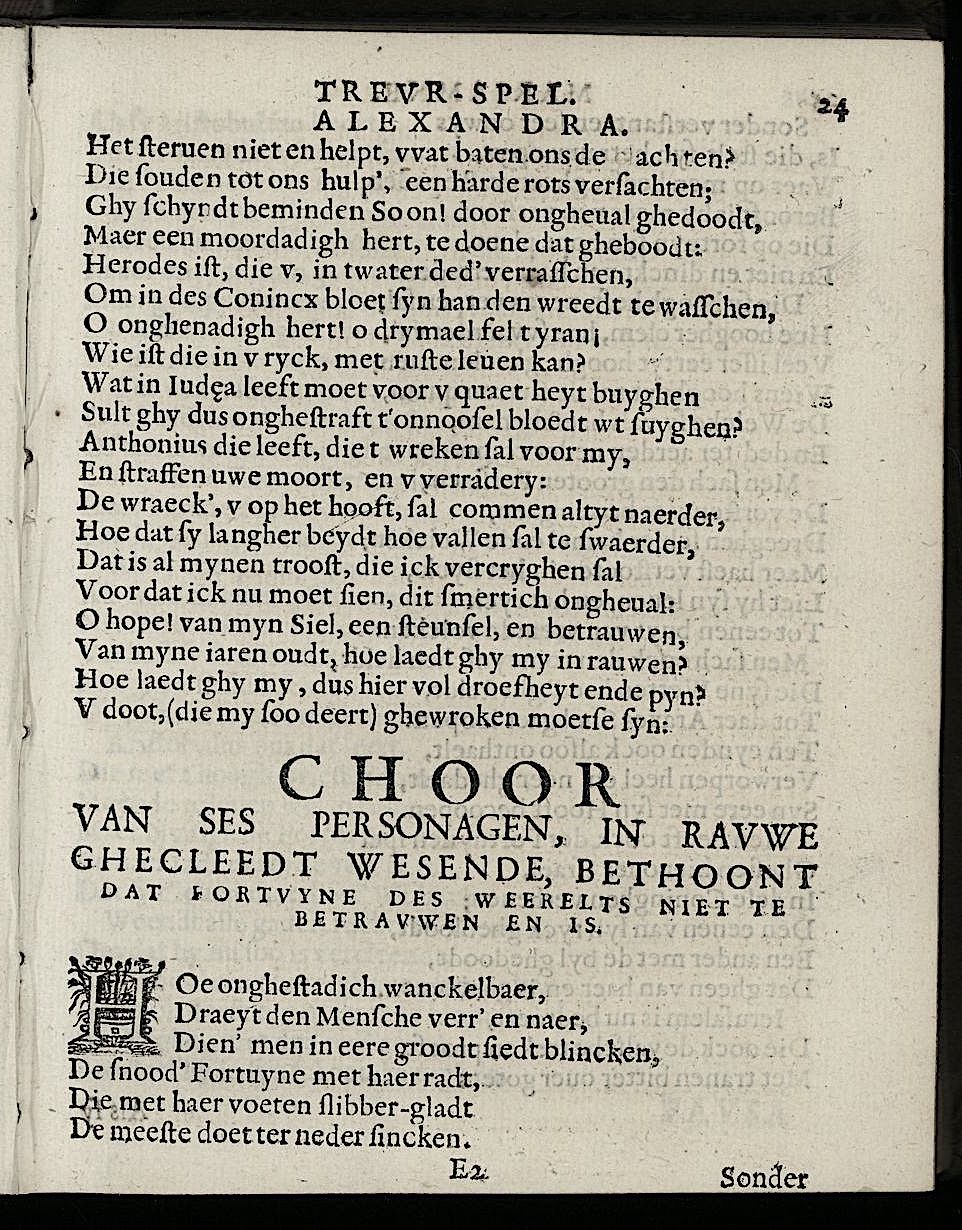 TREVR-SPEL.
24
ALEXANDRA.
Het ſteruen niet en helpt, vvat baten ons de achten?
Die ſouden tot ons hulp', een harde rots verſachten;
Ghy ſchyndt beminden Soon! door ongheual ghedoodt,
Maer een moordadigh hert, te doene dat gheboodt:
Herodes iſt, die v, in twater ded' verraſſchen,
Om in des Conincx bloet ſyn handen wreedt te waſſchen,
O onghenadigh hert! o drymael fel tyran¡
Wie iſt die in v ryck, met ruſte leuen kan?
Wat in Iudęa leeft moet voor v quaet heyt buyghen
Sult ghy dus ongheſtraft t'onnooſel bloedt wt ſuyghen?
Anthonius die leeft, die t wreken ſal voor my,
En ſtraffen uwe moort, en v verradery:
De wraeck', v op het hooft, ſal commen altyt naerder,
Hoe dat ſy langher beydt hoe vallen ſal te ſwaerder,
Dat is al mynen trooſt, die ick vercryghen ſal
Voor dat ick nu moet ſien, dit ſmertich ongheual:
O hope! van myn Siel, een ſteunſel, en betrauwen,
Van myne iaren oudt, hoe laedt ghy my in rauwen?
Hoe laedt ghy my, dus hier vol droefheyt ende pyn?
V doot, (die my ſoo deert) ghewroken moetſe ſyn:
CHOOR
VAN SES PERSONAGEN, IN RAVWE
GHECLEEDT WESENDE, BETHOONT
DAT FORTVYNE DES WEERELTS NIET TE
BETRAVWEN EN IS.
HOe ongheſtadich wanckelbaer,
Draeyt den Menſche verr' en naer,
Dien' men in eere groodt ſiedt blincken,
De ſnood' Fortuyne met haer radt,
Die met haer voeten ſlibber-gladt
De meeſte doet ter neder ſincken.
E2
Sonder